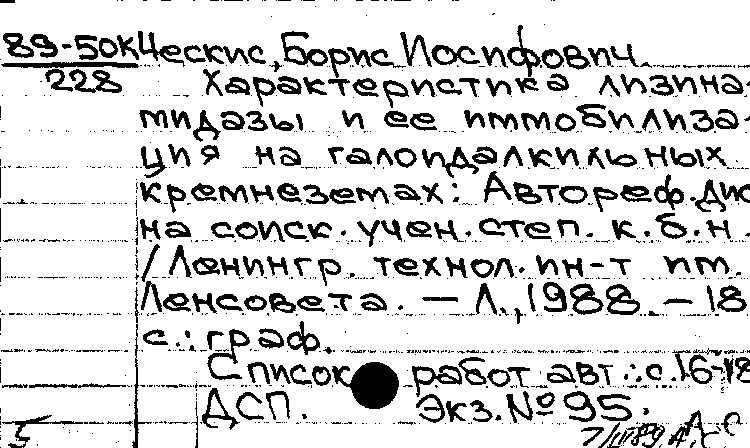 89-50К Ческис, Борис Иосифович.
228 Характеристика лизина-
мидазы и ее иммобилиза-
ция на галоидалкильных
кремнеземах: Автореф. дис
на соиск. учен. степ. к.б.н.
/ Ленингр. технол. ин-т им.
Ленсовета. — Л., 1988. — 18
с.: граф.
Список работ авт.: с. 16-18
ДСП. Экз. № 95.